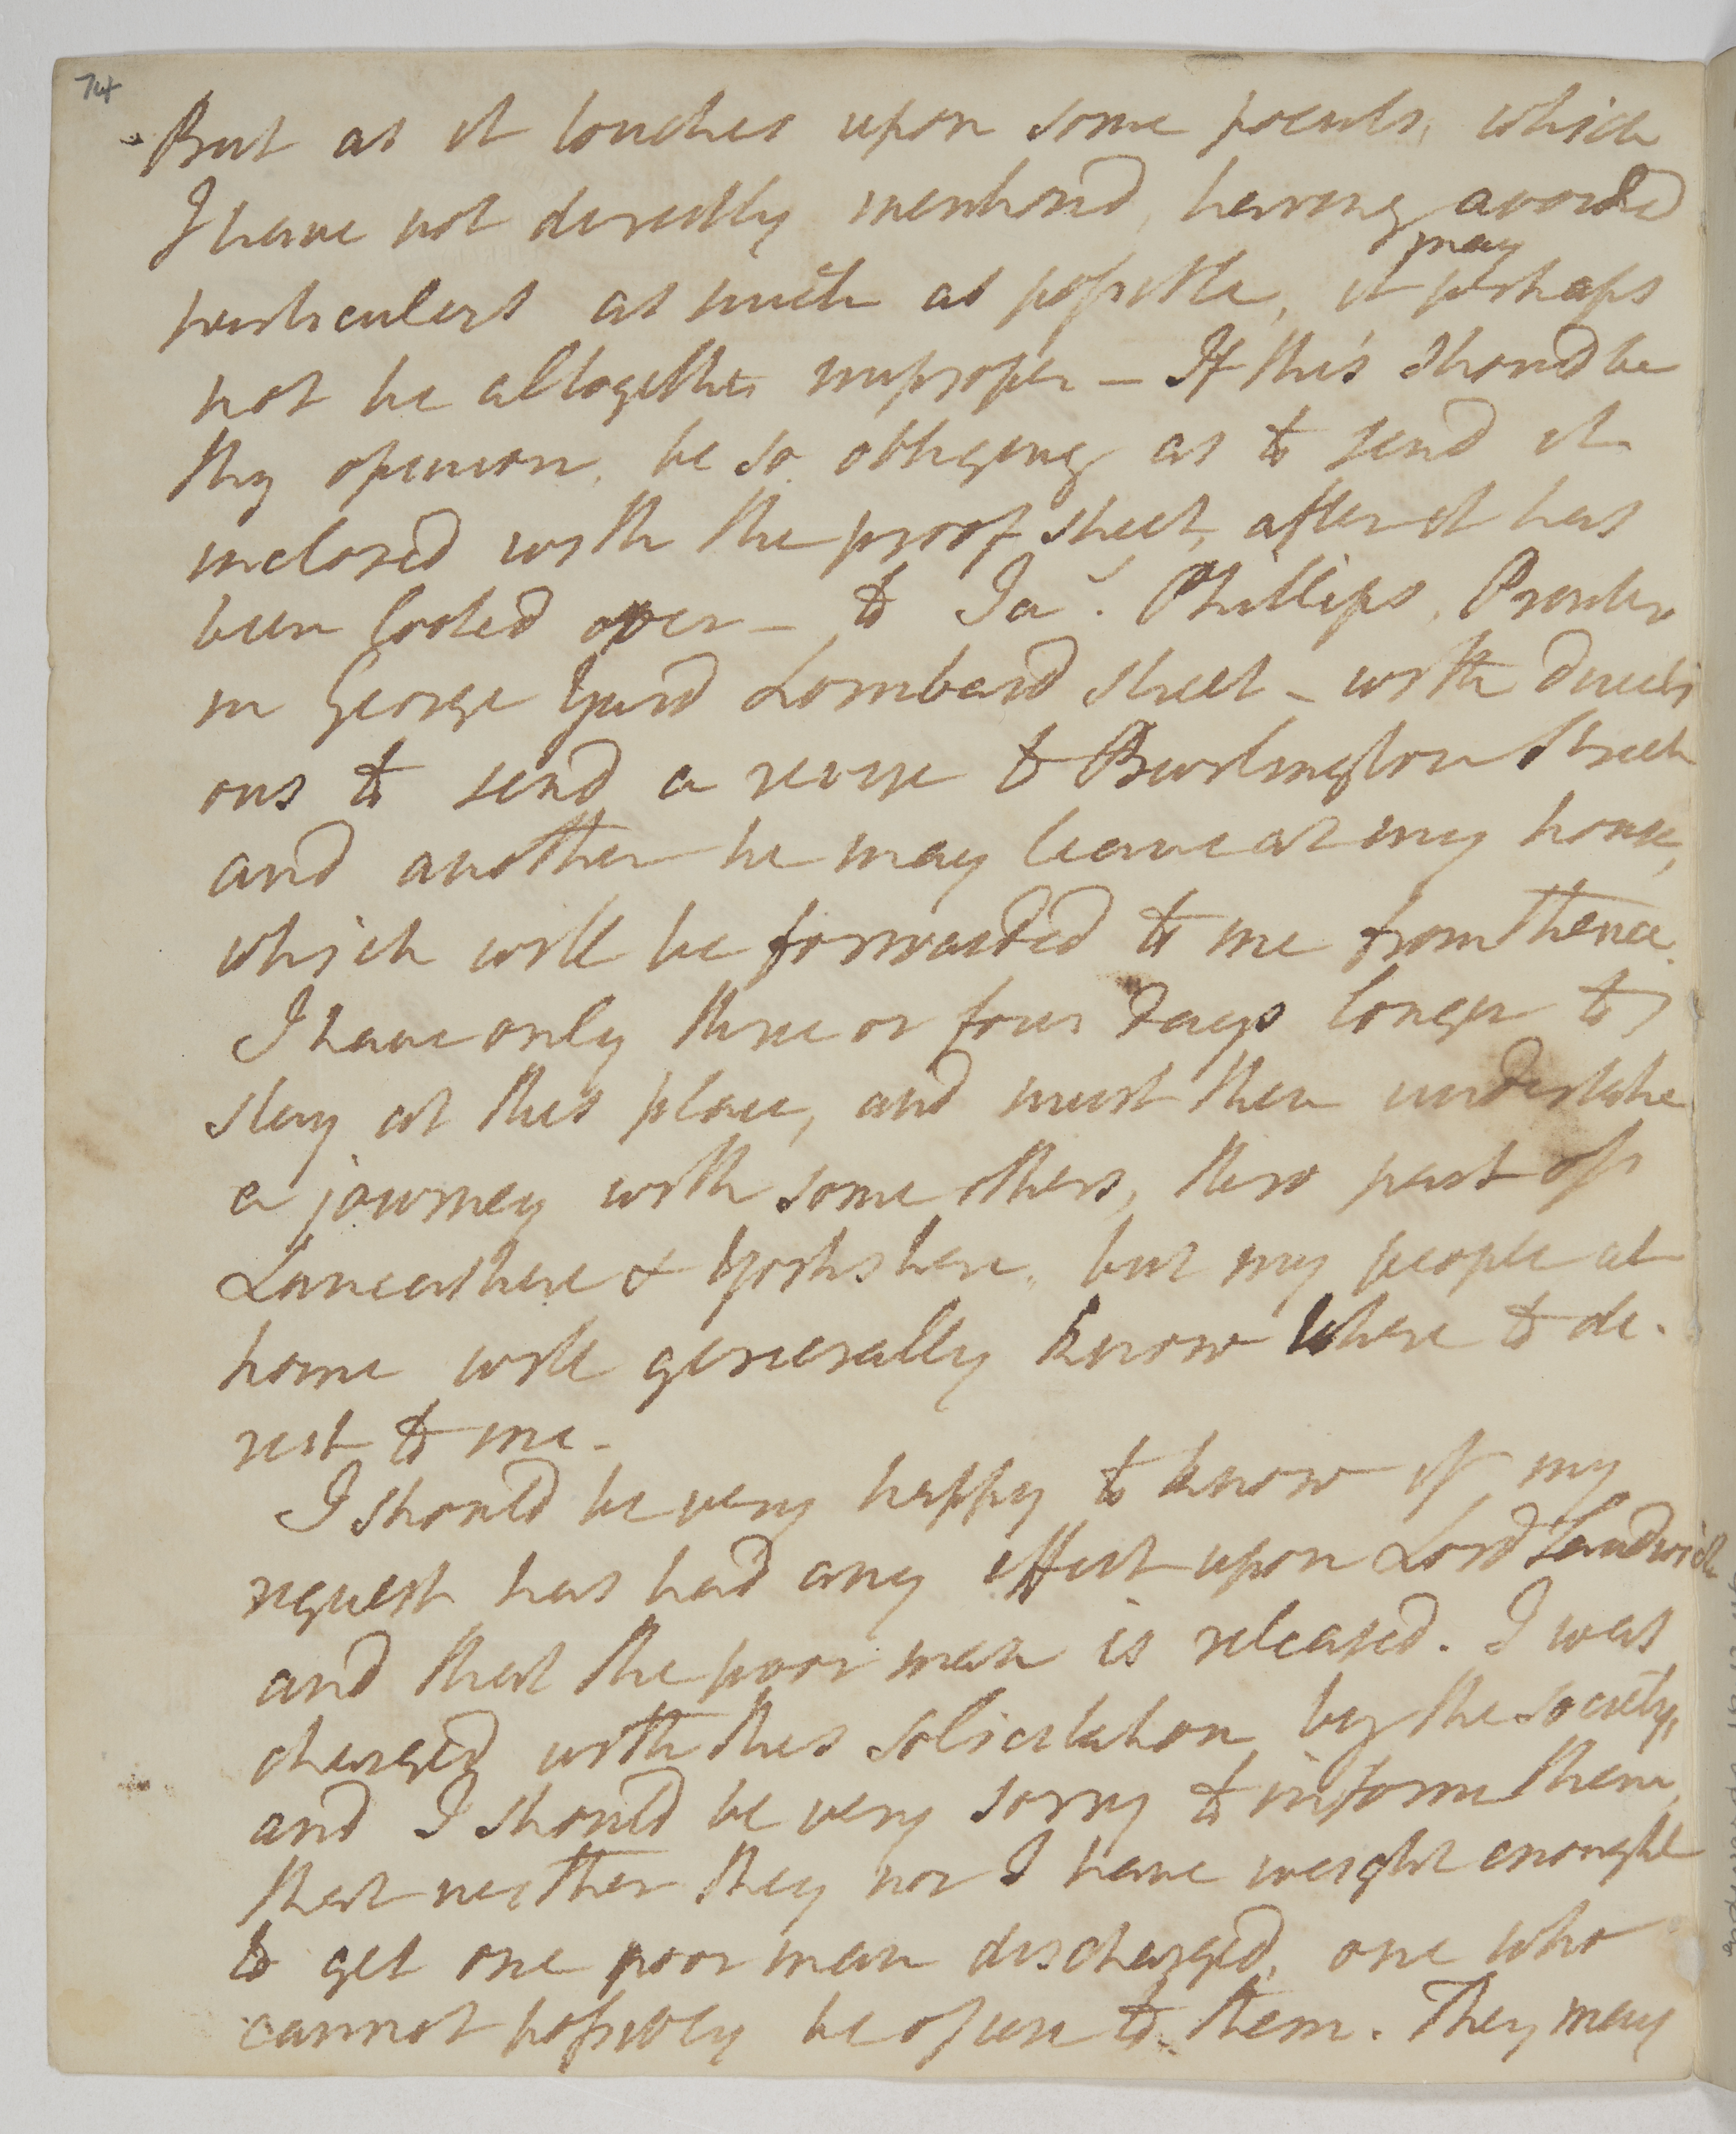 74
But as it touches upon some points, which
I have not directly mentiond, having avoided
particulars as much as possible, it may perhaps
not be altogether improper — If this shoud be
thy opinion, be so obliging as to send it
inclosed with the proof sheet, after it has
been looked over — to Jas. Phillips, Printer
in George Yard Lombard Street — with directi
ons to send a revise to Burlington Street
and another he may leave at my house,
which will be forwarded to me from thence.
I have only three or four days longer to
stay at this place, and must then undertake
a journey with some others, thro part of
Lancashire & Yorkshire, but my people at
home will generally know where to di-
rect to me.
I should be very happy to know if my
request has had any effect upon Lord Sandwich
and that the poor man is released. I was
charged with this solicitation by the society,
and I should be very sorry to inform them,
that neither they nor I have weight enough
to get one poor man discharged, one who
cannot possibly be of use to them. They may